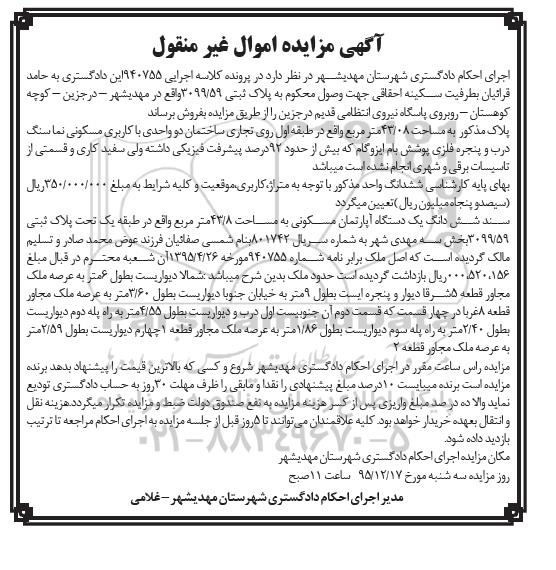 آگهی مزایده اموال غیر منقول
اجرای احکام دادگستری شهرستان مهدیشهر در نظر دارد در پرونده کلاسه اجرایی ۹۴۰۷۵۵این دادگستری به حامد
قرائیان بطرفیت سکینه احقاقی جهت وصول محکوم به پلاک ثبتی ۳۰۹۹/۵۹واقع در مهدیشهر – درجزین – کوچه
کوهستان – روبروی پاسگاه نیروی انتظامی قدیم درجزین را از طریق مزایده بفروش برساند
پلاک مذکور به مساحت ۴۳/۰۸متر مربع واقع در طبقه اول روی تجاری ساختمان دو واحدی با کاربری مسکونی نما سنگ
درب و پنجره فلزی پوشش بام ایزوگام که بیش از حدود ۹۲درصد پیشرفت فیزیکی داشته ولی سفید کاری و قسمتی از
تاسیسات برقی و شهری انجام نشده است میباشد
بهای پایه کارشناسی ششدانگ واحد مذکور با توجه به متراژ،کاربری،موقعیت و کلیه شرایط به مبلغ ۳۵۰/۰۰۰/۰۰۰ریال
(سیصدو پنجاه میلیون ریال)تعیین میگردد
سند شش دانگ یک دستگاه آپارتمان مسکونی به مساحت ۴۳/۸متر مربع واقع در طبقه یک تحت پلاک ثبتی
۳۰۹۹/۵۹بخش سه مهدی شهر به شماره سریال ۸۰۱۷۴۲بنام شمسی صفائیان فرزند عوض محمد صادر و تسلیم
مالک گردیده است که اصل ملک برابر نامه شماره ۹۴۰۷۵۵مورخه ۱۳۹۵/۴/۲۶آن شعبه محترم در قبال مبلغ
۰۰۰،۵۲۰،۱۵۶ریال بازداشت گردیده است حدود ملک بدین شرح میباشد .شمالا دیواریست بطول ۶متر به عرصه ملک
مجاور قطعه ۵شرقا دیوار و پنجره ایست بطول ۹متر به خیابان جنوبا دیواریست بطول ۳/۶۰متر به عرصه ملک مجاور
قطعه ۸غربا در چهار قسمت که قسمت دوم آن جنوبیست اول درب و دیواریست بطول ۴/۵۵متر به راه پله دوم دیواریست
بطول ۲/۴۰متر به راه پله سوم دیواریست بطول ۱/۸۶متر به عرصه ملک مجاور قطعه ۱چهارم دیواریست بطول ۲/۵۹متر
به عرصه ملک مجاور قطعه ۲
مزایده راس ساعت مقرر در اجرای احکام دادگستری مهدیشهر شروع و کسی که بالاترین قیمت را پیشنهاد بدهد برنده
مزایده است برنده میبایست ۱۰درصد مبلغ پیشنهادی را نقدا و مابقی را ظرف مهلت ۳۰روز به حساب دادگستری تودیع
نماید والا ده درصد مبلغ واریزی پس از کسر هزینه مزایده به نفع صندوق دولت ضبط و مزایده تکرار میگردد.هزینه نقل
و انتقال بعهده خریدار خواهد بود. کلیه علاقمندان می توانند تا ۵روز قبل از جلسه مزایده به اجرای احکام مراجعه تا ترتیب
بازدید داده شود.
مکان مزایده اجرای احکام دادگستری شهرستان مهدیشهر
روز مزایده سه شنبه مورخ ۹۵/۱۲/۱۷ ساعت ۱۱صبح
مدیر اجرای احکام دادگستری شهرستان مهدیشهر – غلامی
۰۲۱-۸۸۳۴۹۶۷۰-۵